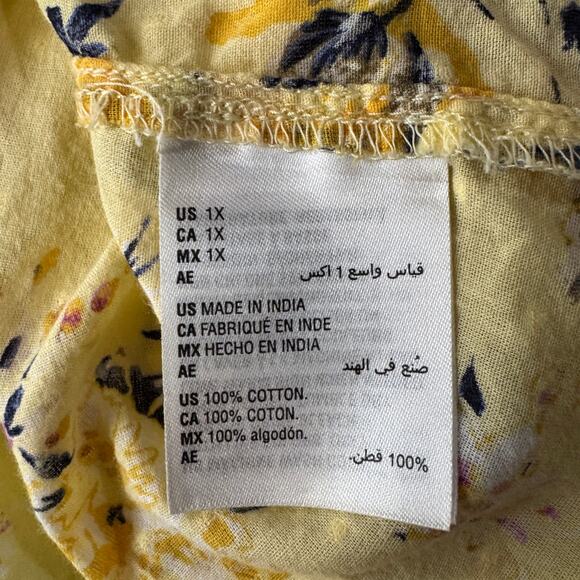 US 1X
CA 1X
MX 1X
AE قياس واسع 1 اكس
US MADE IN INDIA
CA FABRIQUÉ EN INDE
MX HECHO EN INDIA
AE صُنع في الهند
US 100% COTTON.
CA 100% COTON.
MX 100% algodón.
AE 100% قطن.